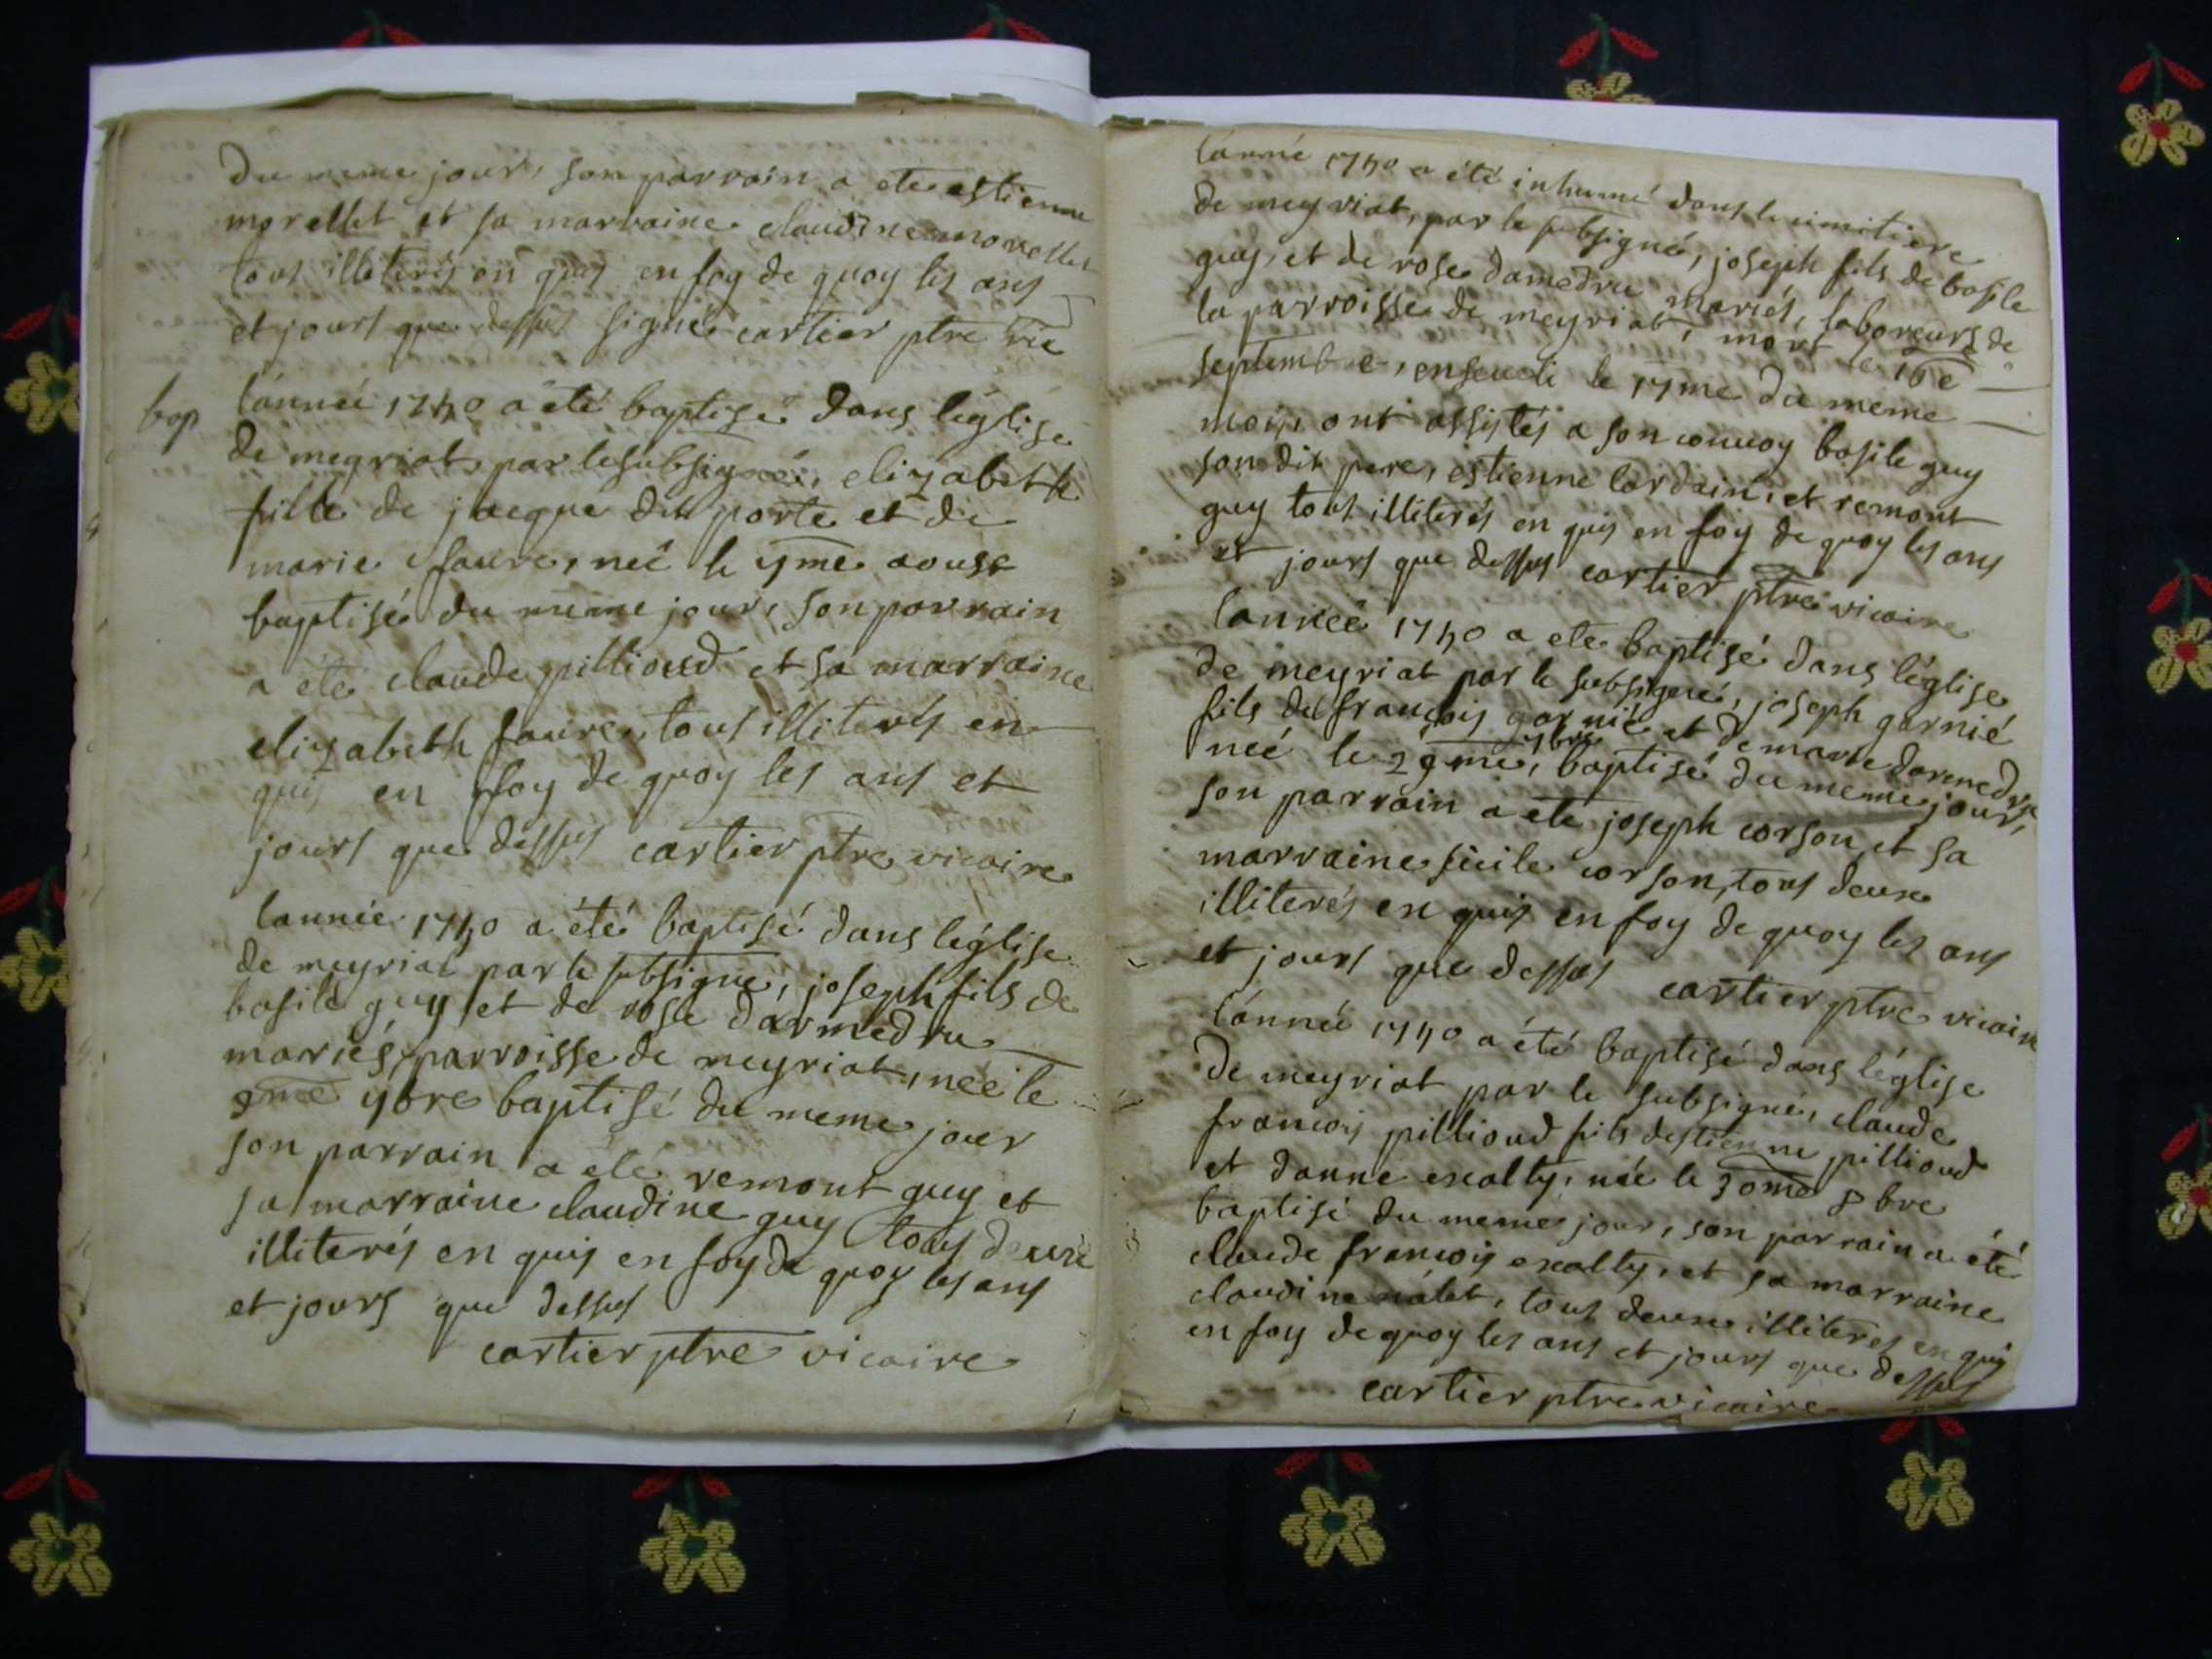 du meme jour, son parrain a ete estienne
morellet et sa marraine claudine morellet
tous illiterés en quis en foy de quoy les ans
et jours que dessus signé cartier ptre vic
bap
lánnée 1740 a été baptisé dans l'église
de meyriat, par le subsigné, elizabeth
fille de jacque du porte et de
marie faure, neé le 7me aoust
baptisé du meme jour, son parrain
a été claude pillioud et sa marraine
elizabeth faure, tous illiterés en
quis en foy de quoy les ans et
jours que dessus cartier ptre vicaire
lannée 1740 a été baptisé dans léglise
de meyriat par le subsigné, joseph fils de
basile guy et de rose darmedru
mariés, parroisse de meyriat, neé le
9me 7bre baptisé du meme jour
son parrain a été remont guy et
sa marraine claudine guy tous deux
illiterés en quis en foy de quoy les ans
et jours que dessus
cartier ptre vicaire
lánneé 1740 a été inhumé dans le cimitiere
de meyriat, par le subsigné, joseph fils de basile
guy, et de rose damedru mariés, laboreurs de
la parroisse de meyriat, mort le 16e
septembre, enseveli le 17me du meme
mois, ont assistés a son convoy basile guy
son dit pere, estienne lordain, et remont
guy tous illiterés en quis en foy de quoy les ans
et jours que dessus cartier ptre vicaire
lanneé 1740 a ete baptisé dans léglise
de meyriat par le subsigné, joseph garnié
fils de françois garnié et de marie darmedru
neé le 29me 7bre, baptisé du meme jour,
son parrain a ete joseph corson et sa
marraine sicile corson, tous deux
illiterés en quis en foy de quoy les ans
et jours que dessus cartier ptre vicaire
lánneé 1740 a été baptisé dans léglise
de meyriat par le subsigné, claude
francois pillioud fils destienne pillioud
et danne exalty, née le 30me 8bre
baptisé du meme jour, son parrain a été
claude francois exalty, et sa marraine
claudine, tous deux illiteres en quis
en foy de quoy les ans et jours que dessus
cartier ptre vicaire